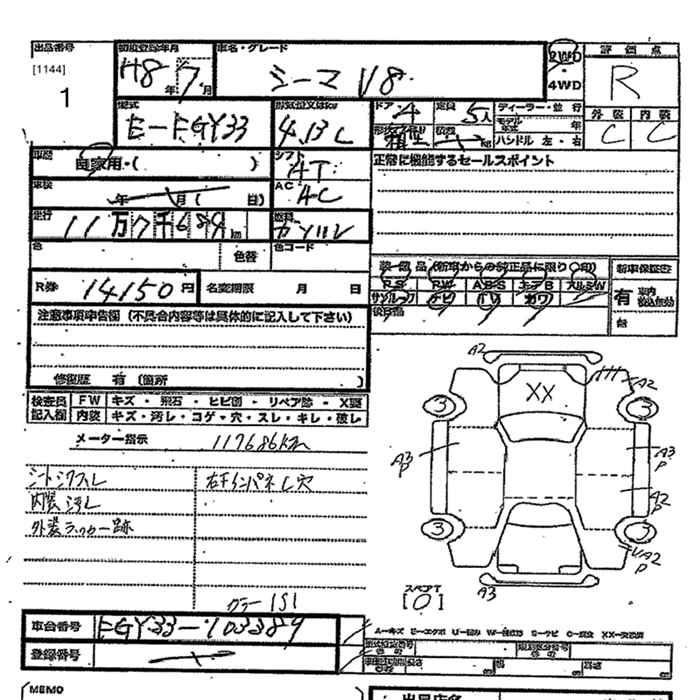 出品番号
[1144]
1
初度登録年月
H8年 7月
車名・グレード
シーマ V8
2WD
・
4WD
評価点
R
外装 内装
C C
型式
E-FGY33
排気量又はkw
4.13L
ドア・4
形状 箱型
定員 5人
積載 kg
ディーラー・並行
モデル年式 年
ハンドル 左・右
車歴
自家用・( )
シフト
AT
車検
年 月( 日)
AC
AC
走行
11万7千6百 km
燃料
ガソリン
正常に機能するセールスポイント
色
色替
色コード
R券 14150円
名変期限 月 日
装備品(新車からの純正品に限り○印)
P.S P.W A.B.S エアB アルミW
サンルーフ ナビ TV カワ
後日品
新車保証書
有 車内積込有効
無
注意事項申告欄(不具合内容等は具体的に記入して下さい)
修復歴 有(箇所 )
検査員記入欄
FW キズ・飛石・ヒビ割・リペア跡・X要
内装 キズ・汚レ・コゲ・穴・スレ・キレ・破レ
メーター指示 117686km
シートシワスレ
右インパネし穴
内装汚レ
外装ラッカー跡
A2
XX
A2
3
3
A3
P
A3
P
A2
P
3
3
A2
P
A3
スペアT
[0]
カラー 1S1
車台番号 FGY33-103389
登録番号
A-キズ E-エクボ U-凹み W-補修跡 S-サビ C-腐食 XX-交換済
長さ cm 幅 cm 高さ cm
MEMO
出品店名